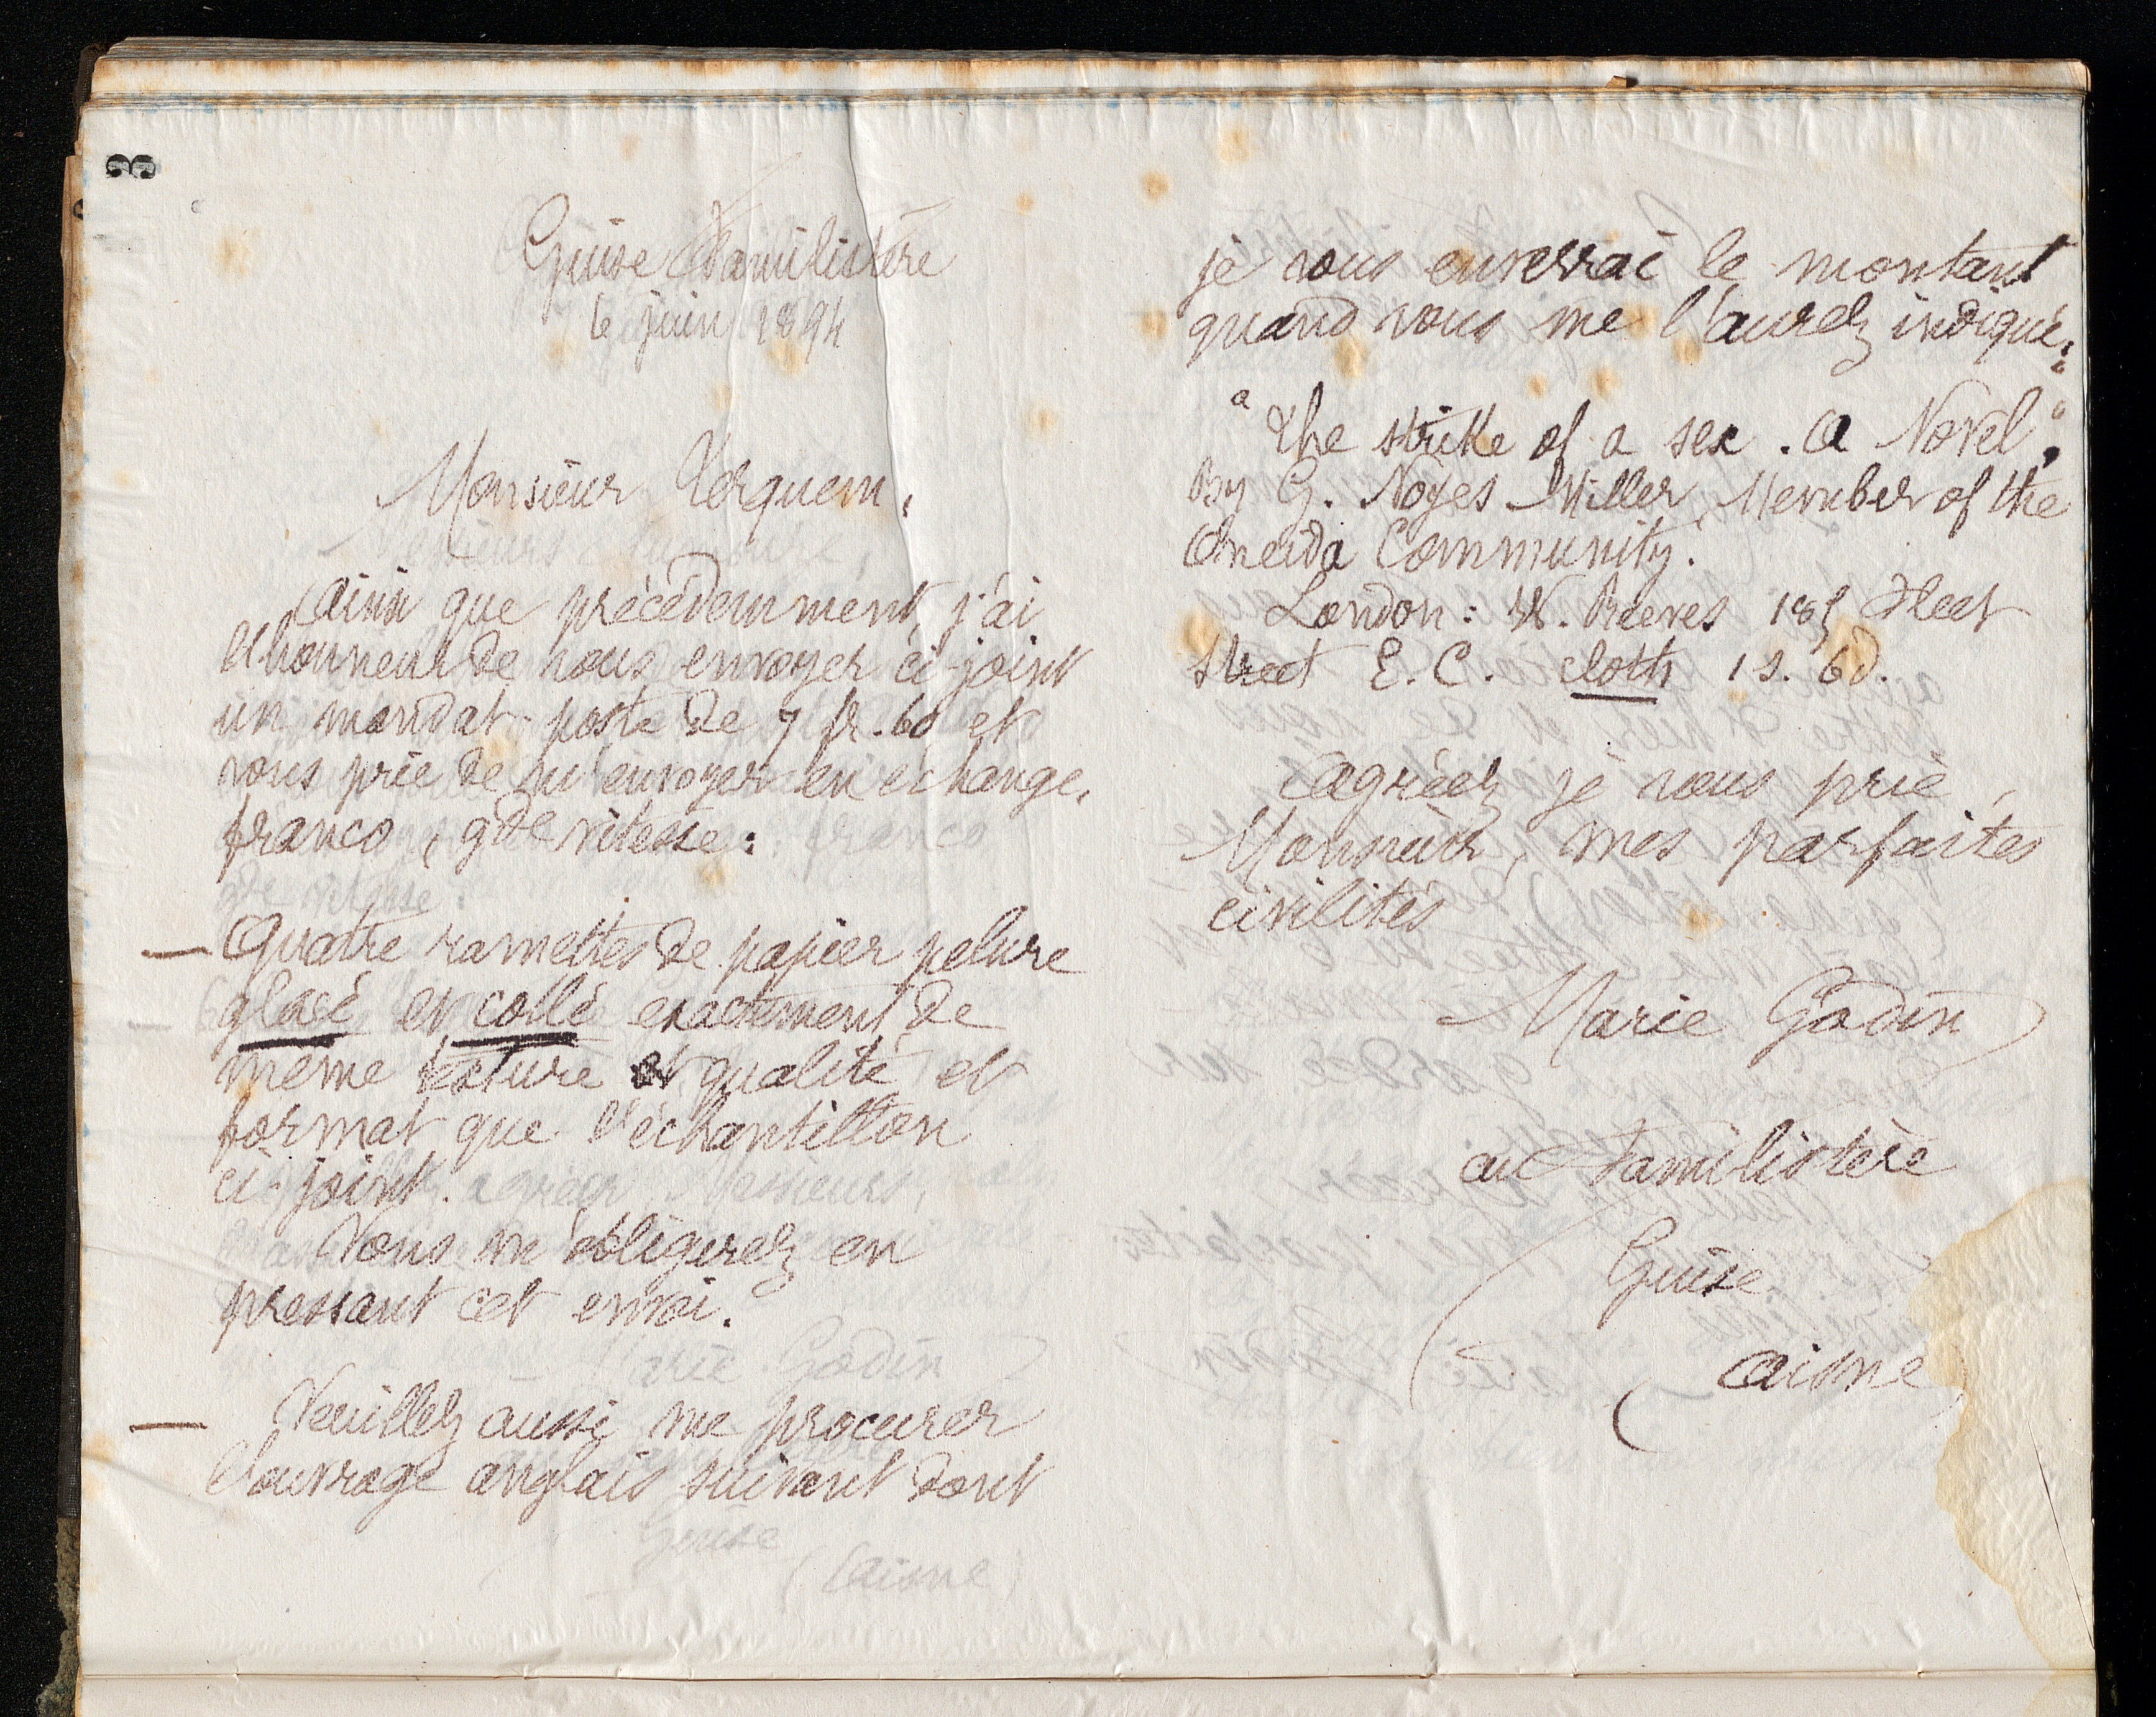 Guise Familistère
6 juin 1894
Monsieur Terquem,
Ainsi que précédemment, j'ai
l'honneur de vous envoyer ci-joint
un mandat-poste de 7 fr. 60 et
vous prie de m'envoyer en échange,
franco, gde vitesse :
— Quatre ramettes de papier pelure
glacé et collé exactement de
même texture et qualité et
format que l'échantillon
ci-joint.
Vous m'obligerez en
pressant cet envoi.
— Veuillez aussi me procurer
l'ouvrage anglais suivant dont
je vous enverrai le montant
quand vous me l'aurez indiqué :
"The strike of a sex. A Novel".
By G. Noyes Miller, Member of the
Oneida Community.
London : W. Reeves 185 Fleet
street E. C. cloth 1 s. 6 d.
Agréez je vous prie,
Monsieur, mes parfaites
civilités
Marie Godin
au Familistère
Guise
(Aisne)